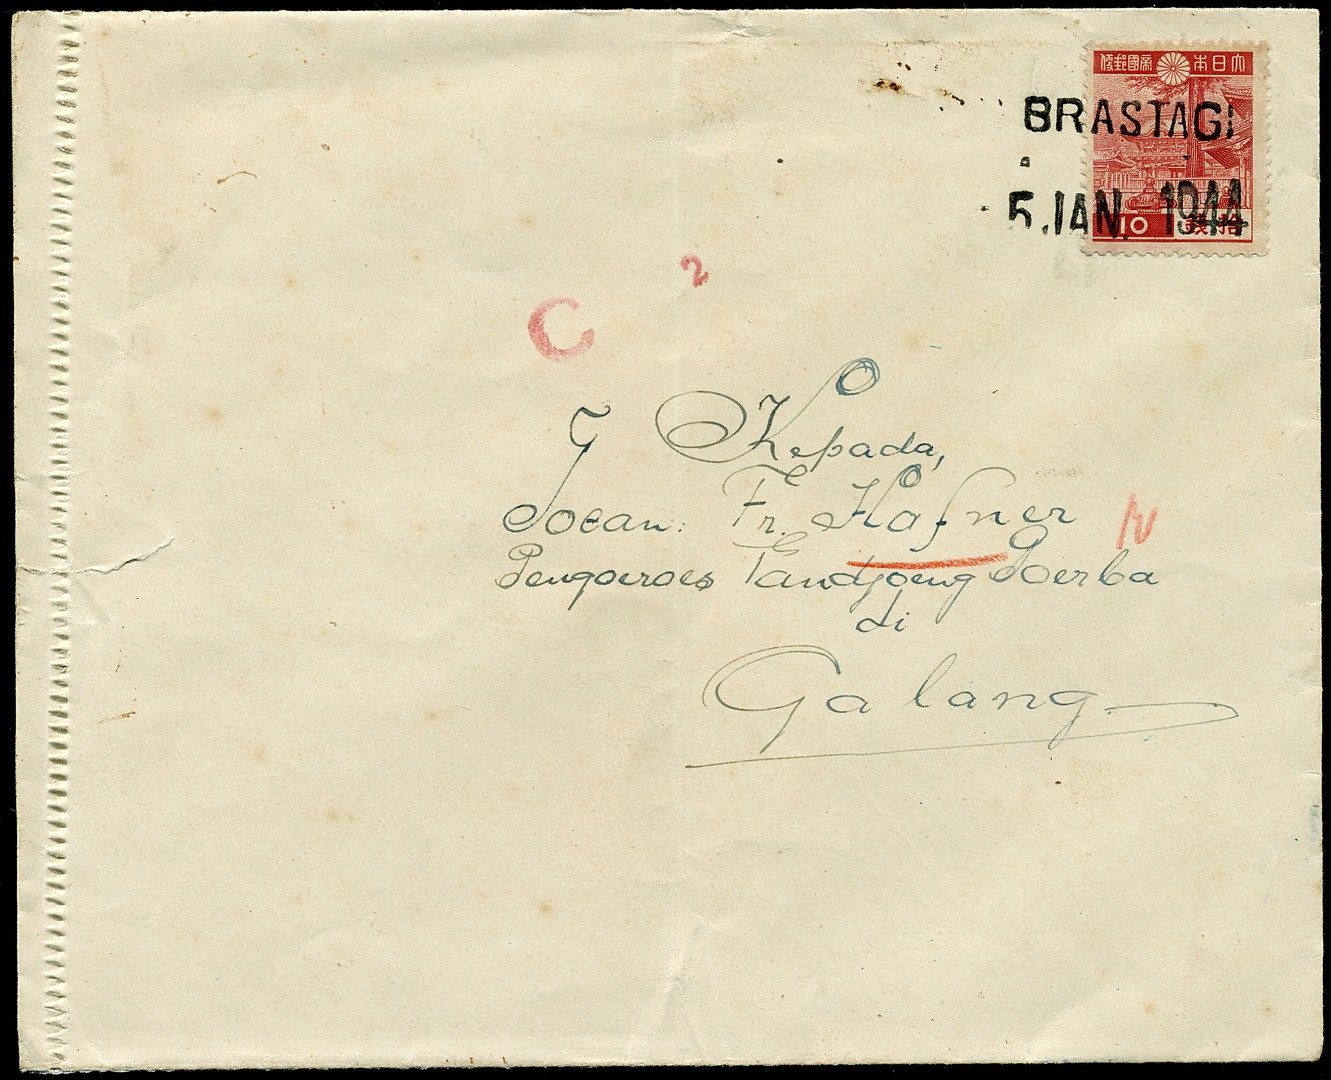 大日本帝國郵便
BRASTAGI
5.JAN. 1944
10 拾銭
2
C
Kepada,
Toean Fr. Hafner
N
Pengoeroes Tandjoeng Poerba
di
Galang